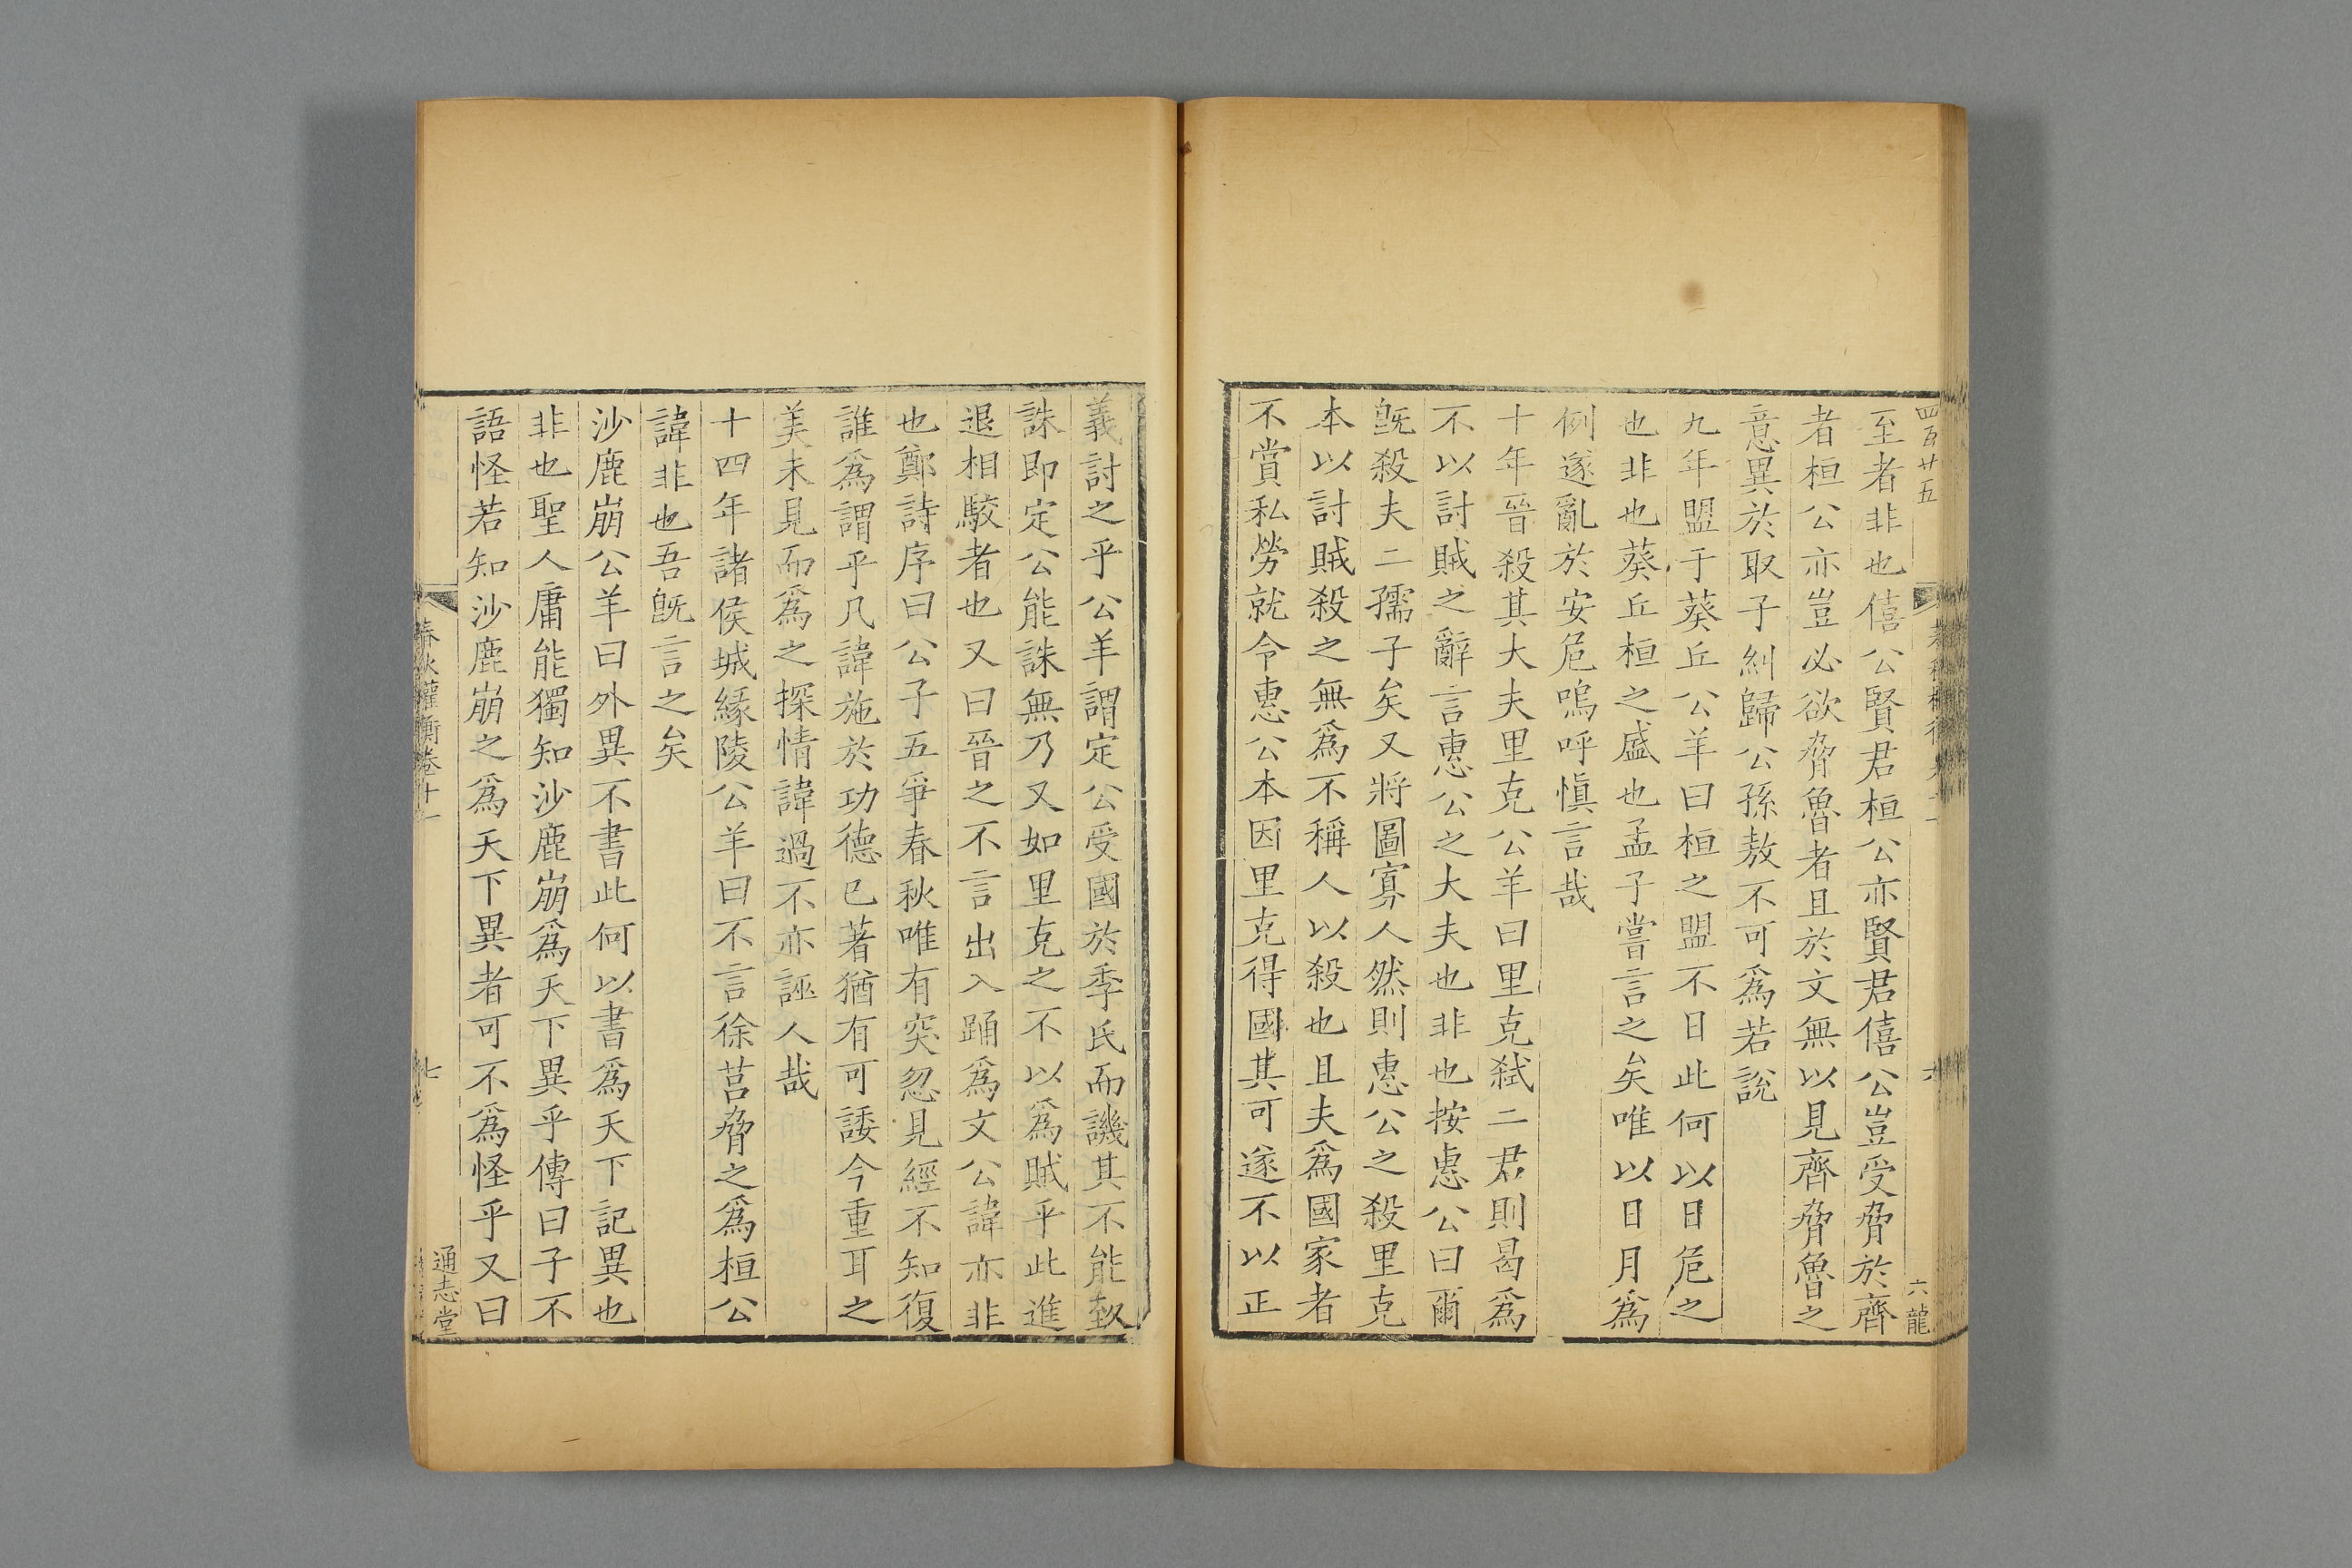 四百廿五
至者非也僖公賢君桓公亦賢君僖公豈受脅於齊
者桓公亦豈必欲脅魯者且於文無以見齊脅魯之
意異於取子糾歸公孫敖不可爲若說
九年盟于葵丘公羊曰桓之盟不日此何以日危之
也非也葵丘桓之盛也孟子嘗言之矣唯以日月爲
例遂亂於安危嗚呼愼言哉
十年晉殺其大夫里克公羊曰里克弑二君則曷爲
不以討賊之辭言惠公之大夫也非也按惠公曰爾
旣殺夫二孺子矣又將圖寡人然則惠公之殺里克
本以討賊殺之無爲不稱人以殺也且夫爲國家者
不賞私勞就令惠公本因里克得國其可遂不以正
六龍
義討之乎公羊謂定公受國於季氏而譏其不能致
誅即定公能誅無乃又如里克之不以爲賊乎此進
退相駮者也又曰晉之不言出入踊爲文公諱亦非
也鄭詩序曰公子五爭春秋唯有突忽見經不知復
誰爲謂乎凡諱施於功德已著猶有可諉今重耳之
美未見而爲之探情諱過不亦誣人哉
十四年諸侯城緣陵公羊曰不言徐莒脅之爲桓公
諱非也吾旣言之矣
沙鹿崩公羊曰外異不書此何以書爲天下記異也
非也聖人庸能獨知沙鹿崩爲天下異乎傳曰子不
語怪若知沙鹿崩之爲天下異者可不爲怪乎又曰
春秋權衡卷十一
七
通志堂